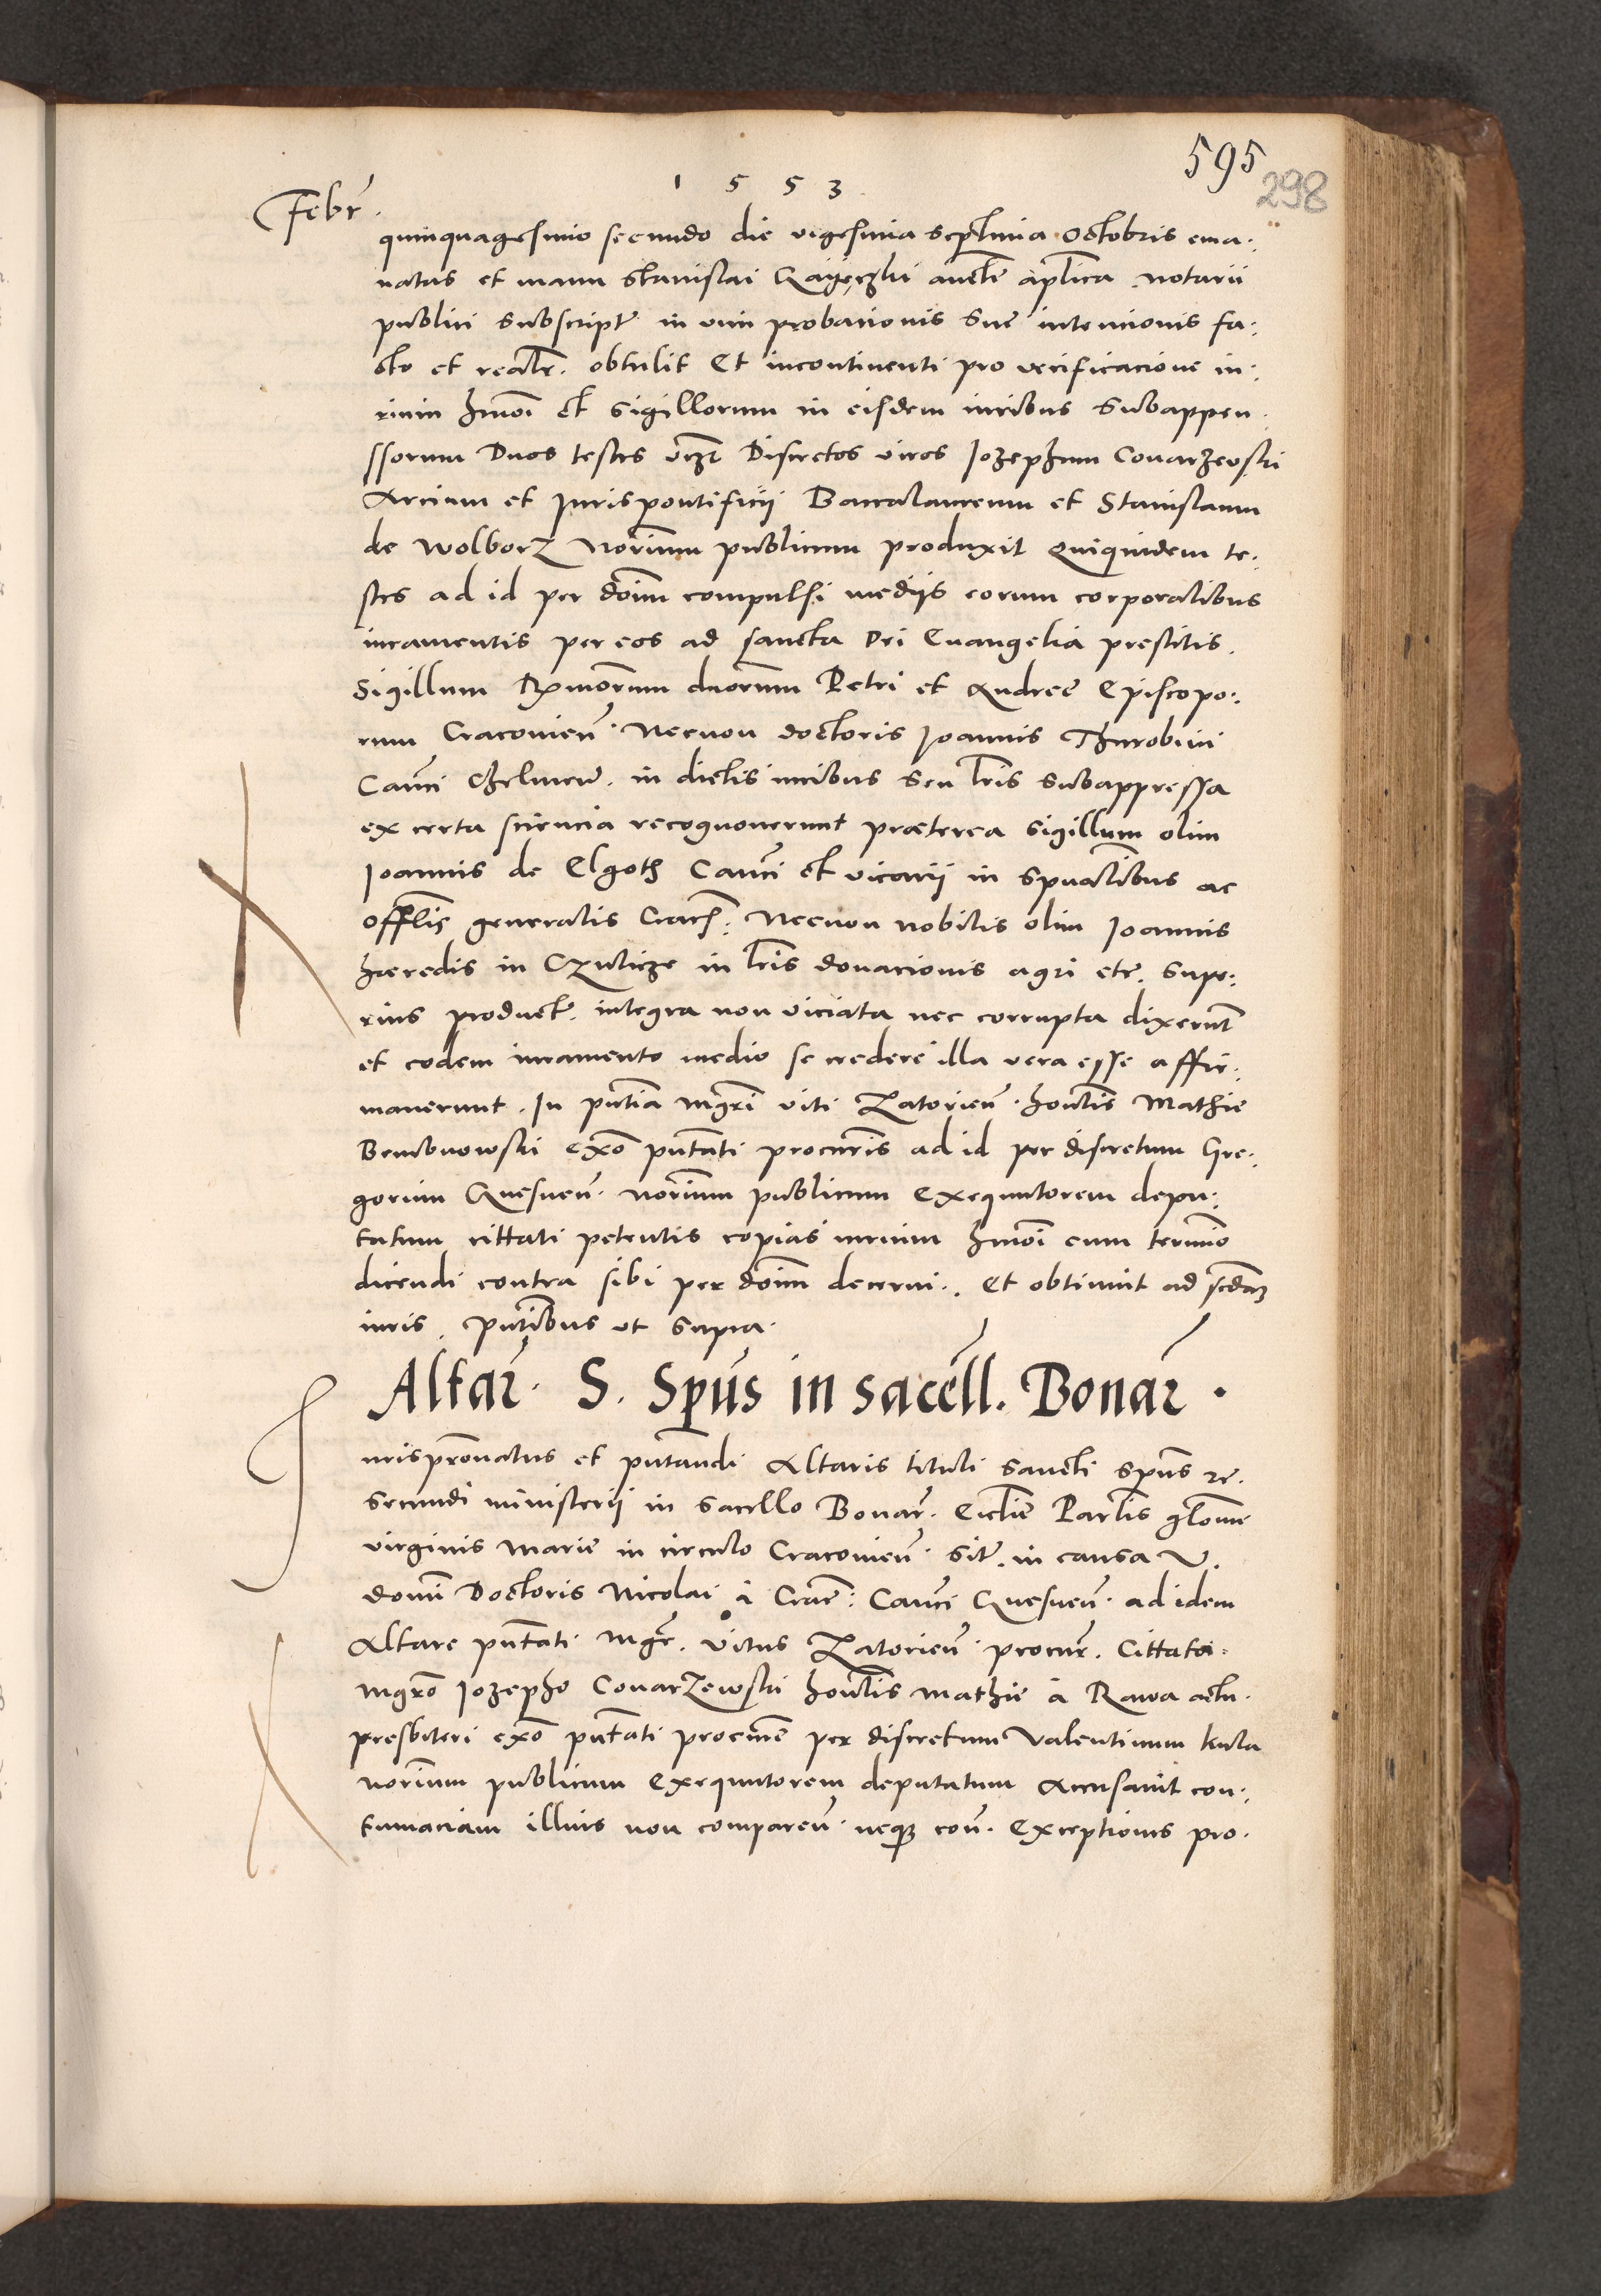 1553
595
298
Febr̃.
quinquagesimo secundo die vigesima septima Octobris ema.
natas et manu Stanislai Gayęczki auctē aplica notarii
publici subscript̃ in vim probacionis sue intencionis fa.
cto et realr̃. obtulit Et incontinenti pro verificacione iu.
rium hmoi et sigillorum in eisdem iuribus subappen.
ssorum Duos testes vcꝫt Discretos viros Iozephum Conarzewski
Arcium et Iurispontificii Baccalaureum et Stanislaum
de Wolborz Norium publicum produxit Quiquidem te.
stes ad id per dom̃ compulsi mediis eorum corporalibus
iuramentis per eos ad sancta Dei Euangelia prestitis.
Sigillum Rx̃morum dnorum Petri et Andree Episcopo.
rum Cracovieñ. Necnon doctoris Ioannis Thurobini
Canci Chelmeñ. in dictis iuribus seu lris subappressa
ex certa sciencia recognoverunt præterea sigillum olim
Ioannis de Elgoth Canci et vicarii in spualibus ac
offlis generalis Crac̃. Necnon nobilis olim Ioannis
hæredis in Czulicze in lris donacionis agri etc̃. supe.
rius product̃. integra non viciata nec corrupta dixerunt
et eodem iuramento medio se credere illa vera esse affir.
maverunt. In pñtia mgri Viti Zatorieñ. honlis Mathie
Bembnowski exõ pñtati procuris ad id per discretum Gre.
gorium Gnesneñ. norium publicum Exequutorem depu.
tatum cittati petentis copias iurium hmoi cum termino
dicendi contra sibi per dom̃ decerni. Et obtinuit ad scdaꝫ
iuris. pñtibus ut supra.
Altar̃. S. Spũs in sacell. Bonar̃.
Iurispronatus et pñtandi Altaris tituli sancti spũs re.
secundi ministerii in sacello Bonar̃. Ecclie Parlis glom̃
virginis Marie in circulo Cracovieñ. sit̃. in causa V.
domi Doctoris Nicolai à Crac̃. Canci Gnesneñ. ad idem
Altare pñtati Mgr̃. Vitus Zatorieñ. procur̃. Cittata
mgro Iozepho Conarzewski honlis Mathie à Rawa actu.
presbiteri exõ pñtati procure per discretum Valentinum Kula
norium publicum Exequutorem deputatum Accusavit con.
tumaciam illius non compareñ. neqꝫ coñ. Exceptiones pro.